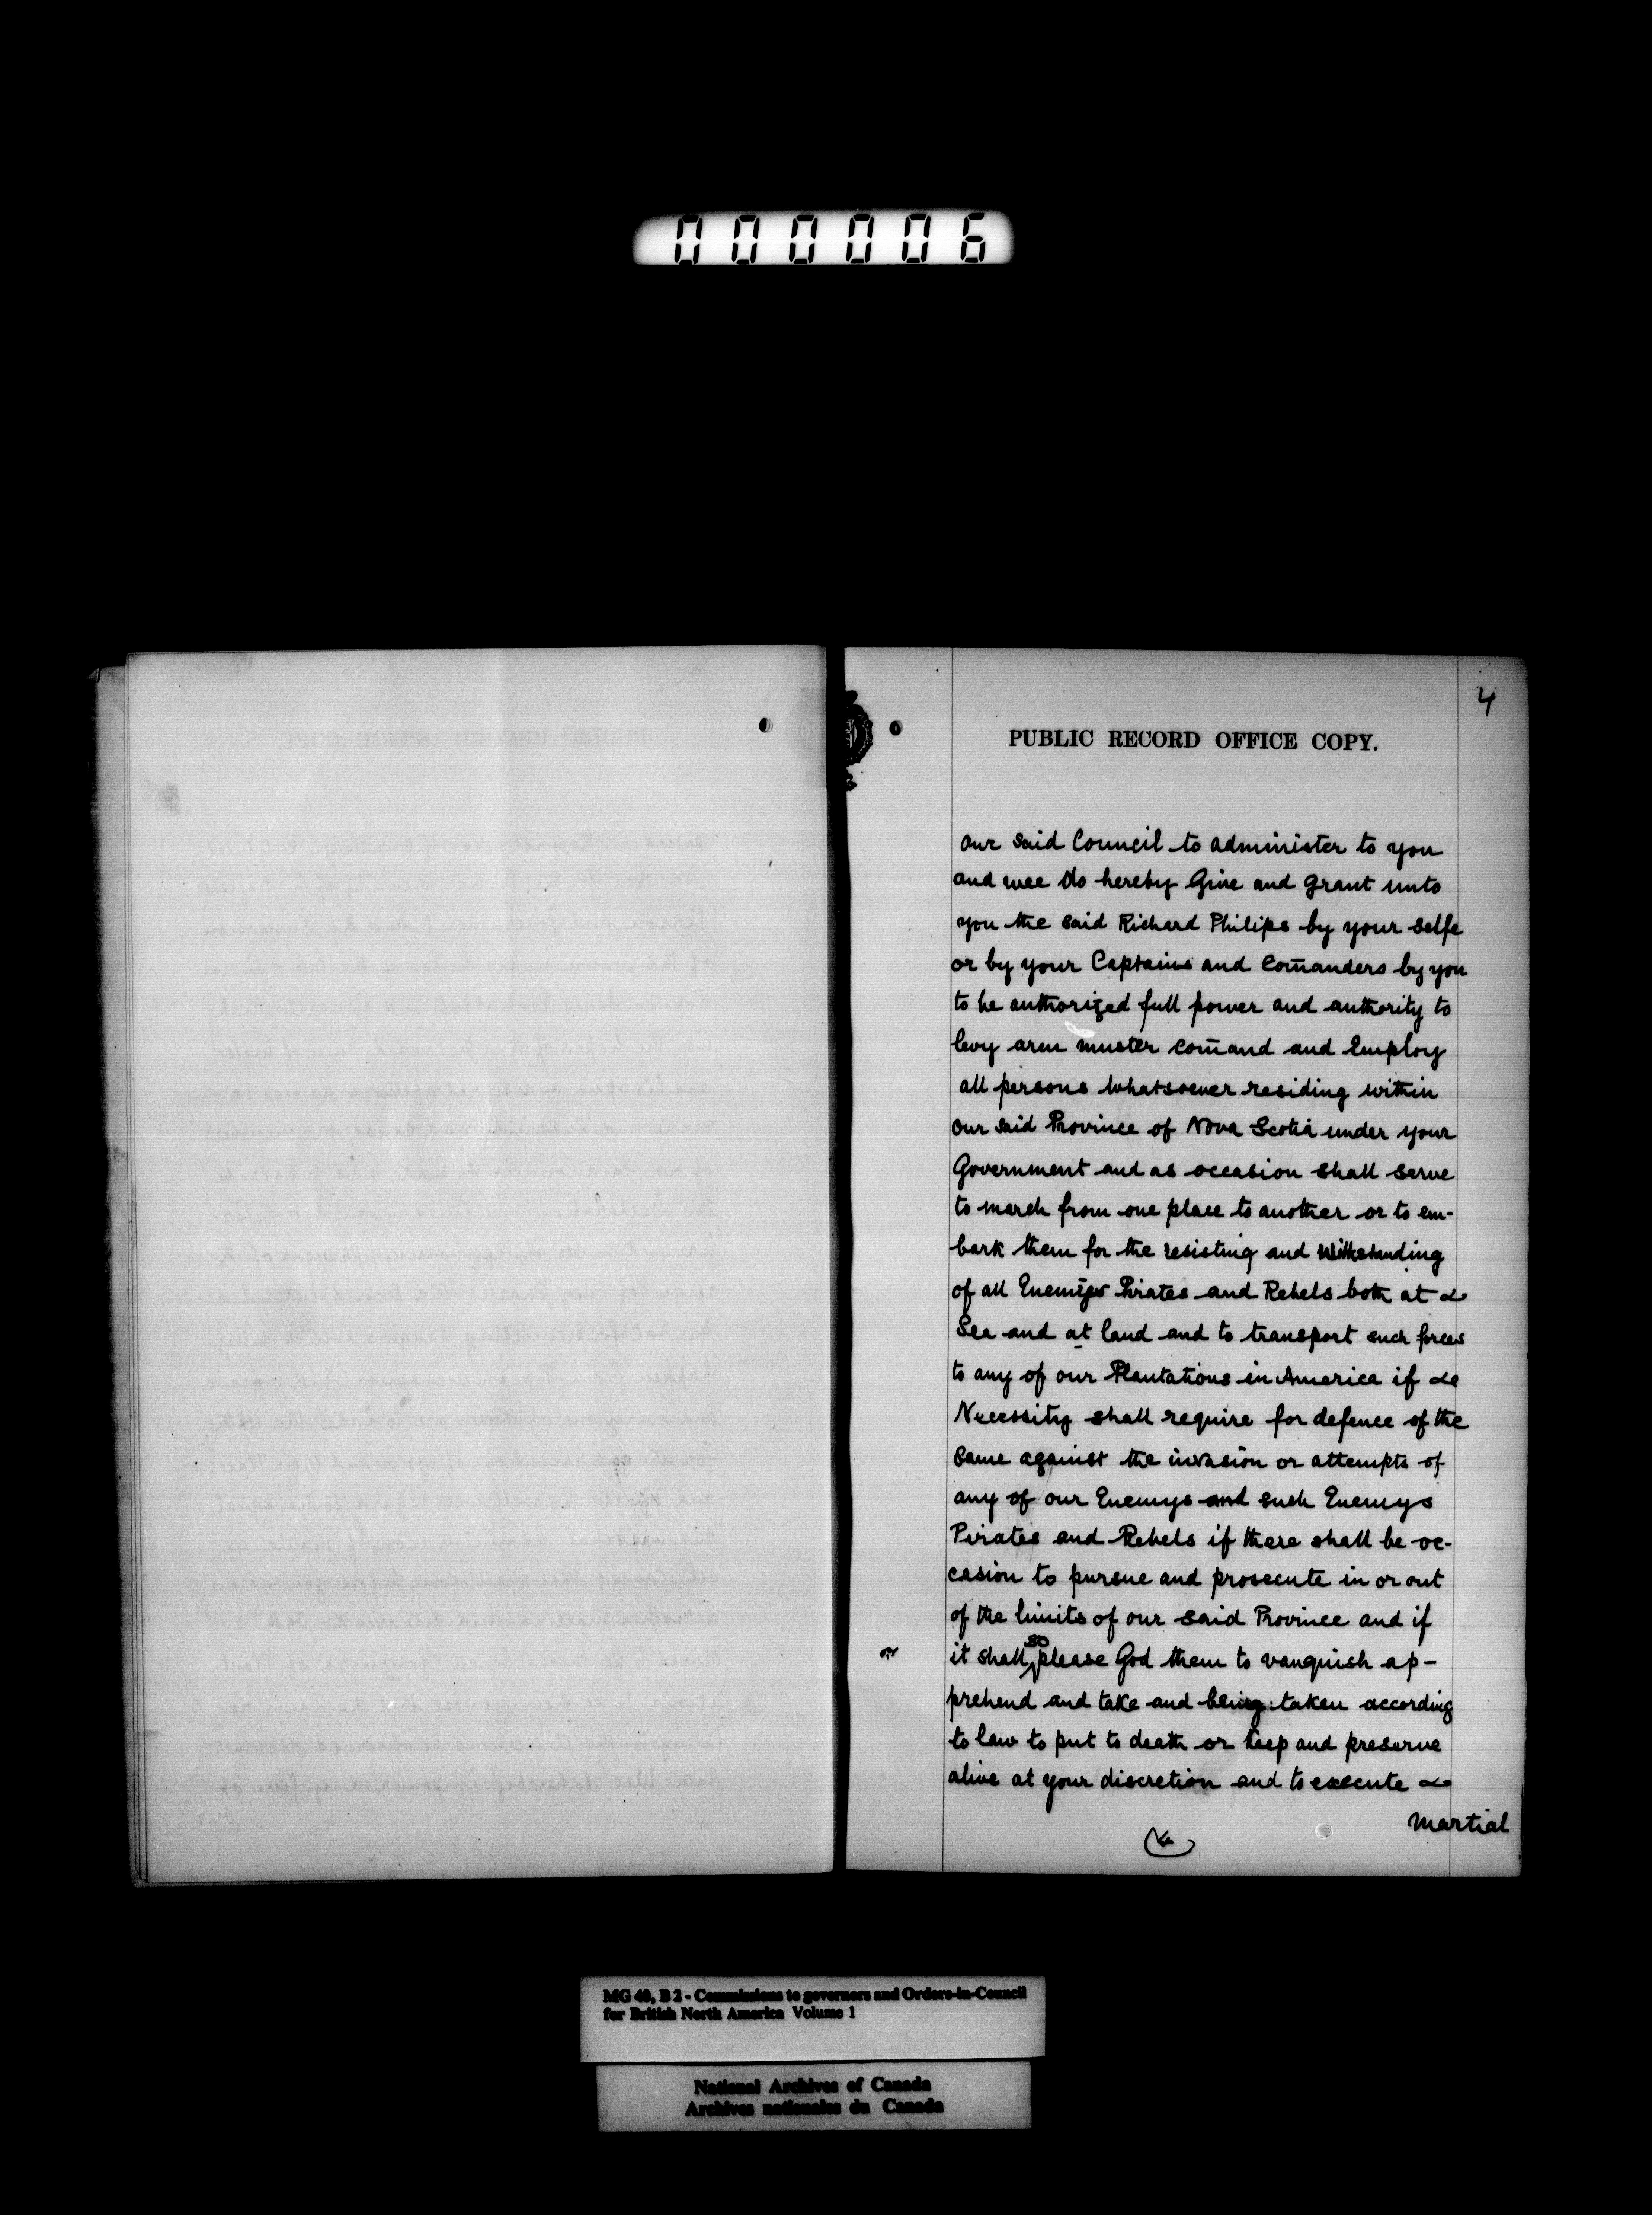 000006
4
PUBLIC RECORD OFFICE COPY.
our said Council to administer to you
and wee do hereby Give and grant unto
you the said Richard Philips by your selfe
or by your Captains and Com̄anders by you
to be authorized full power and authority to
levy arm muster com̄and and Employ
all persons whatsoever residing within
our said Province of Nova Scotia under your
Government and as occasion shall serve
to march from one place to another or to em-
bark them for the resisting and withstanding
of all Enemys Pirates and Rebels both at
Sea and at land and to transport such forces
to any of our Plantations in America if
Necessity shall require for defence of the
same against the invasion or attempts of
any of our Enemys and such Enemys
Pirates and Rebels if there shall be oc-
casion to pursue and prosecute in or out
of the limits of our said Province and if
it shall so please God them to vanquish ap-
prehend and take and being taken according
to law to put to death or keep and preserve
alive at your discretion and to execute
martial
MG 40, B 2 - Commissions to governors and Orders-in-Council
for British North America Volume 1
National Archives of Canada
Archives nationales du Canada